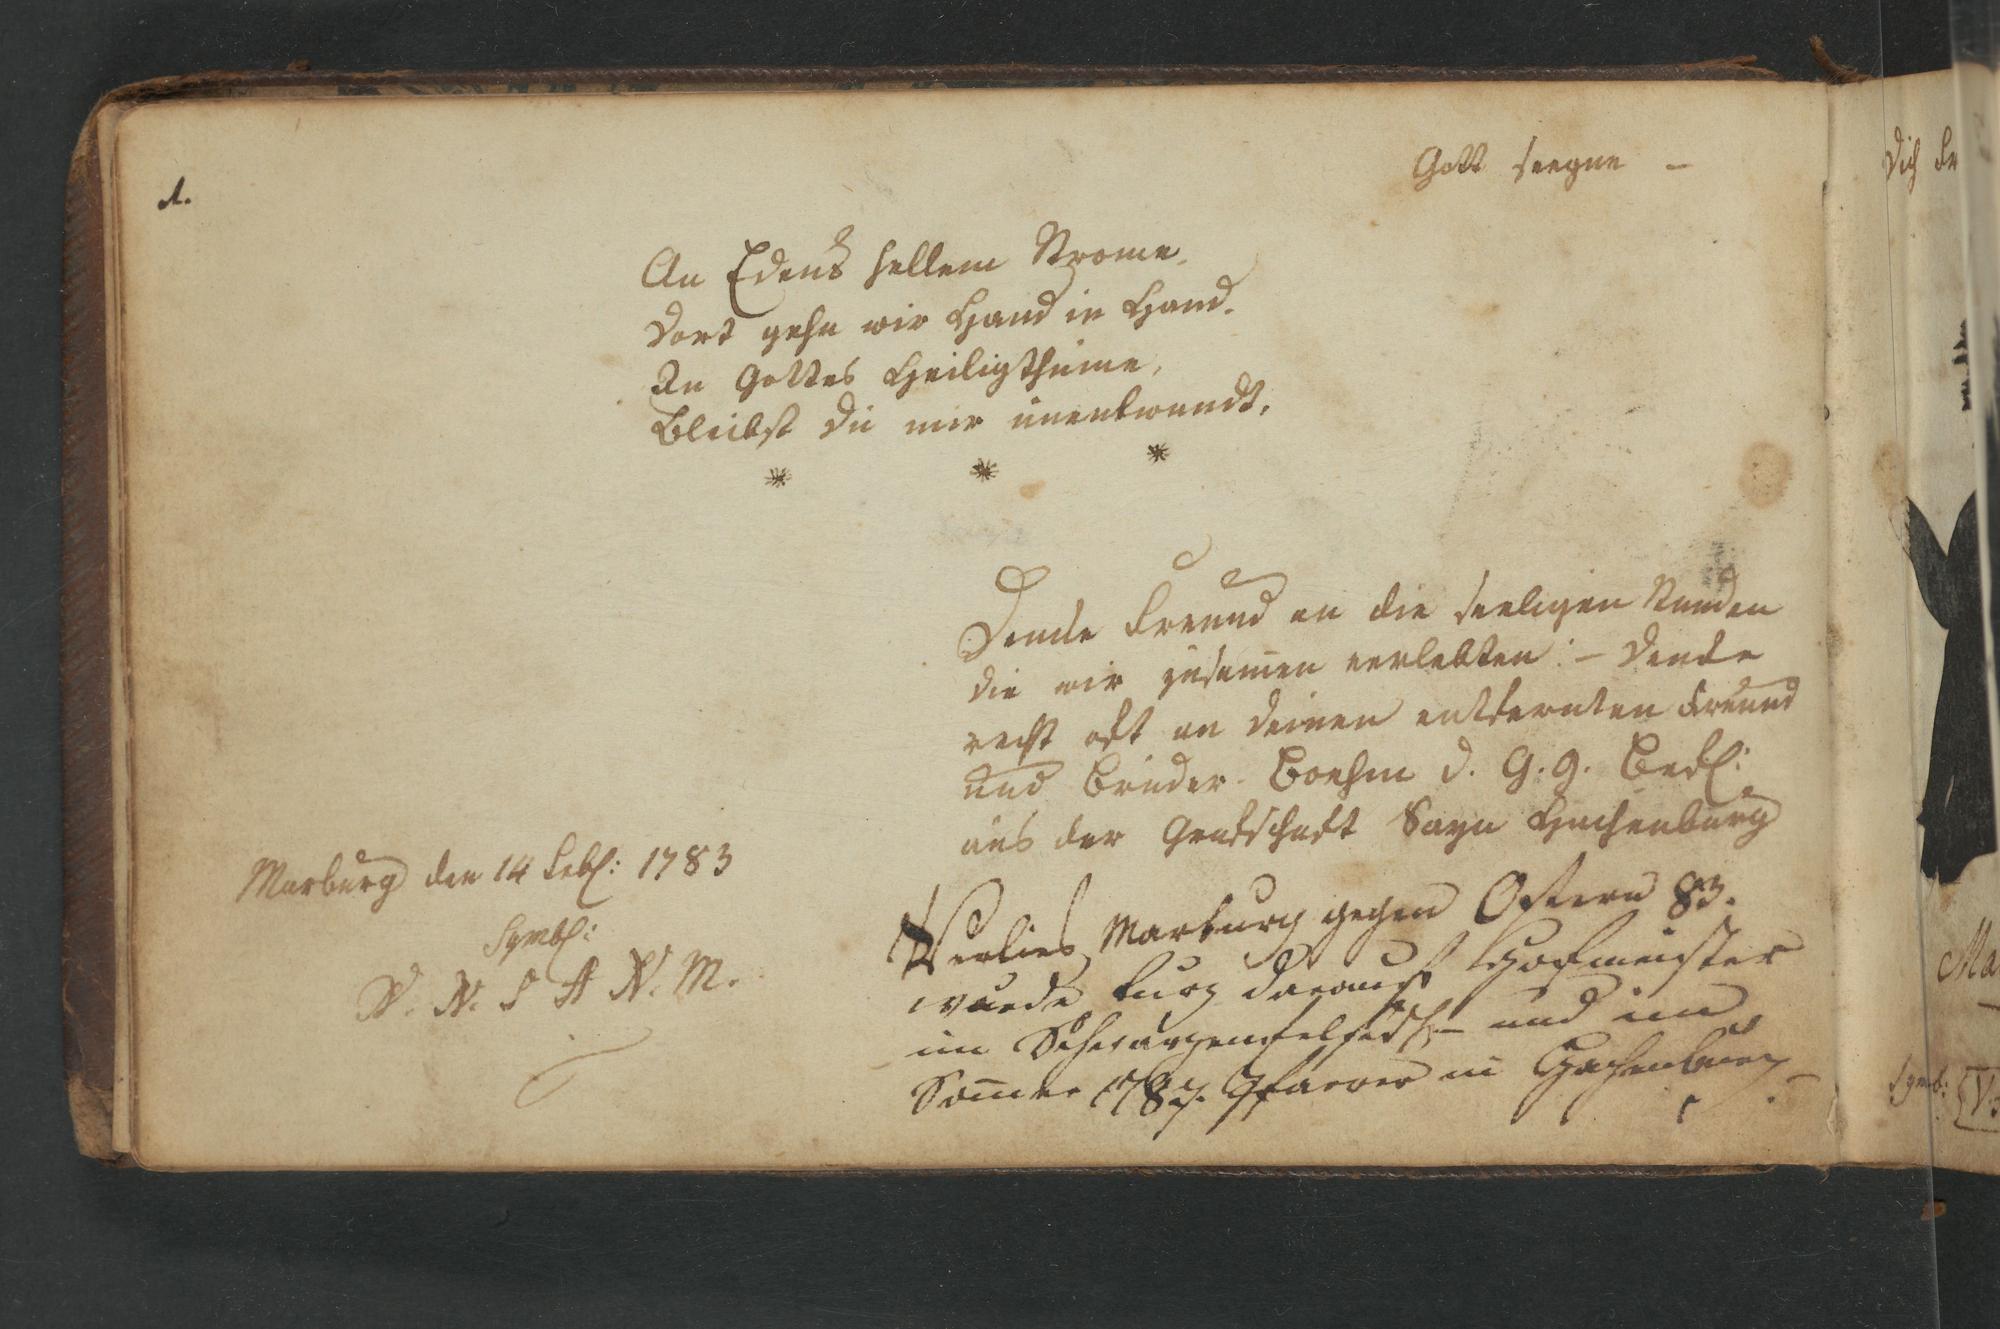 1.
Gott seegne –
An Edens hellem Strome,
Dort gehn wir Hand in Hand.
In Gottes Heiligthume,
Bleibst Du mir unentwandt.
Dencke Freund an die seeligen Stunden
die wir zusamen verlebten: – Dencke
recht oft an deinen entfernten Freund
und Bruder. Boehm d. G. G. Bedl:
aus der Grafschaft Sayn Hachenburg
Marburg den 14 Febl: 1783
Symbl:
V. N. S A N. M.
Verlies Marburg gegen Ostern 83.
wurde kurz darauf Hofmeister
im – und im
Somer 1787. Pfarrer in Hachenburg
Dich
Ma
Symb: V.